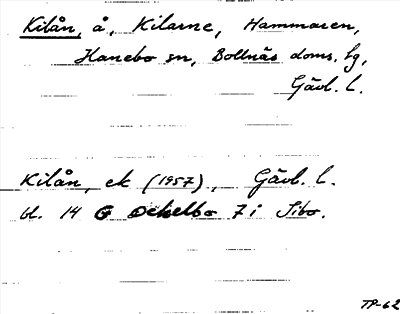 Kilån, å, Kilarne, Hammaren,
Hanebo sn, Bollnäs doms. tg,
Gävl. l.
Kilån, ek (1957), Gävl. l.
bl. 14 G Ockelbo 7 i Sibo.
TP-62